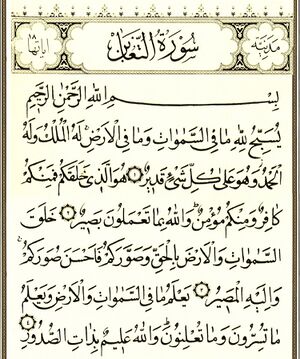 مدنية
سُورَةُ التَّغَابُنِ
آياتها ١٨
بِسْمِ اللهِ الرَّحْمٰنِ الرَّحِيمِ
يُسَبِّحُ لِلّٰهِ مَا فِي السَّمٰوَاتِ وَمَا فِي الْاَرْضِ لَهُ الْمُلْكُ وَلَهُ
الْحَمْدُ وَهُوَ عَلٰى كُلِّ شَيْءٍ قَدِيرٌ ١ هُوَ الَّذِي خَلَقَكُمْ فَمِنْكُمْ
كَافِرٌ وَمِنْكُمْ مُؤْمِنٌ وَاللهُ بِمَا تَعْمَلُونَ بَصِيرٌ ٢ خَلَقَ
السَّمٰوَاتِ وَالْاَرْضَ بِالْحَقِّ وَصَوَّرَكُمْ فَاَحْسَنَ صُوَرَكُمْ
وَاِلَيْهِ الْمَصِيرُ ٣ يَعْلَمُ مَا فِي السَّمٰوَاتِ وَالْاَرْضِ وَيَعْلَمُ
مَا تُسِرُّونَ وَمَا تُعْلِنُونَ وَاللهُ عَلِيمٌ بِذَاتِ الصُّدُورِ ٤